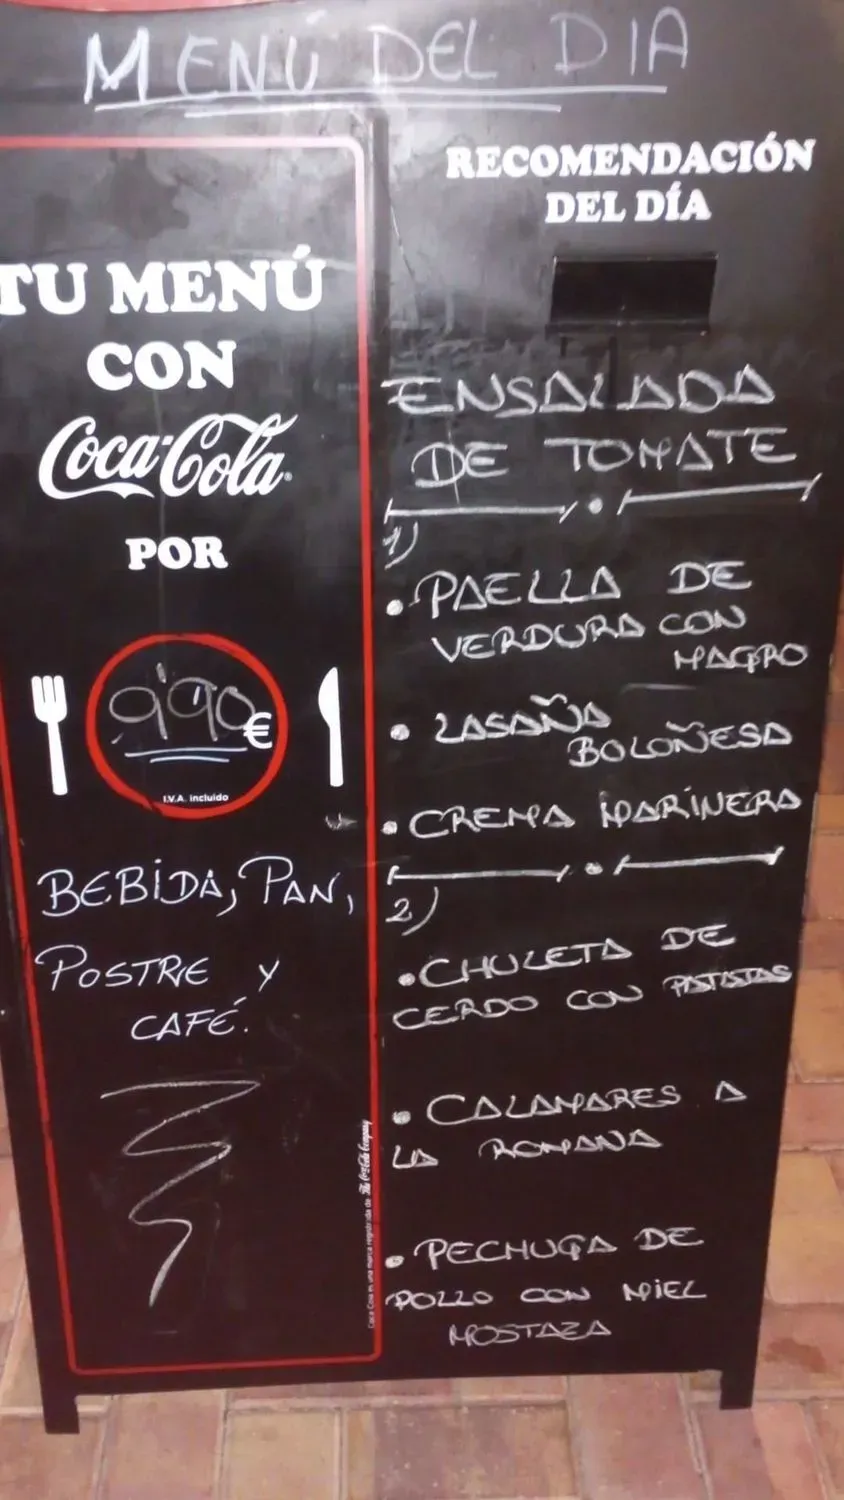 MENÚ DEL DIA
TU MENÚ
CON
Coca-Cola
POR
9'90€
I.V.A. incluido
BEBIDA, PAN,
POSTRE Y
CAFÉ.
Coca-Cola es una marca registrada de The Coca-Cola Company
RECOMENDACIÓN
DEL DÍA
ENSALADA
DE TOMATE
1)
• PAELLA DE
VERDURA CON
MAGRO
• LASAÑA
BOLOÑESA
• CREMA MARINERA
2)
• CHULETA DE
CERDO CON PATATAS
• CALAMARES A
LA ROMANA
• PECHUGA DE
POLLO CON MIEL
MOSTAZA